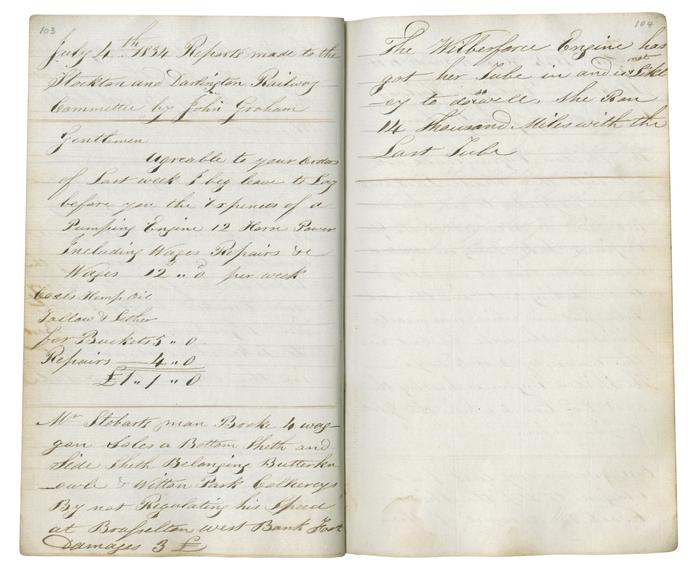 103
July 4th 1834 Reports made to the
Stockton and Darlington Railway
Committee by John Graham
Gentlemen
Agreable to your Orders
of Last week I beg leave to Lay
before you the Expences of a
Pumping Engine 12 Horse Power
Including Wages Repairs &c
Wages 12 " 0 per week
Coals Hemp Oil
Tallow & Lether
for Buckets 5 " 0
Repairs 4 " 0
£1 " 1 " 0
Mr Stobarts man Booke 4 wag-
gon Soles a Bottom Sheth and
Side Sheth Belonging Butterkn
-owle & Witton Park Colhereys
By not Regulating his Speed
at Brusselton west Bank Foot
Damages 3 £
104
The Wilberforce Engine has
got her Tube in and is not Likl
-ey to do well, She Ran
14 Thousand Miles with the
Last Tube